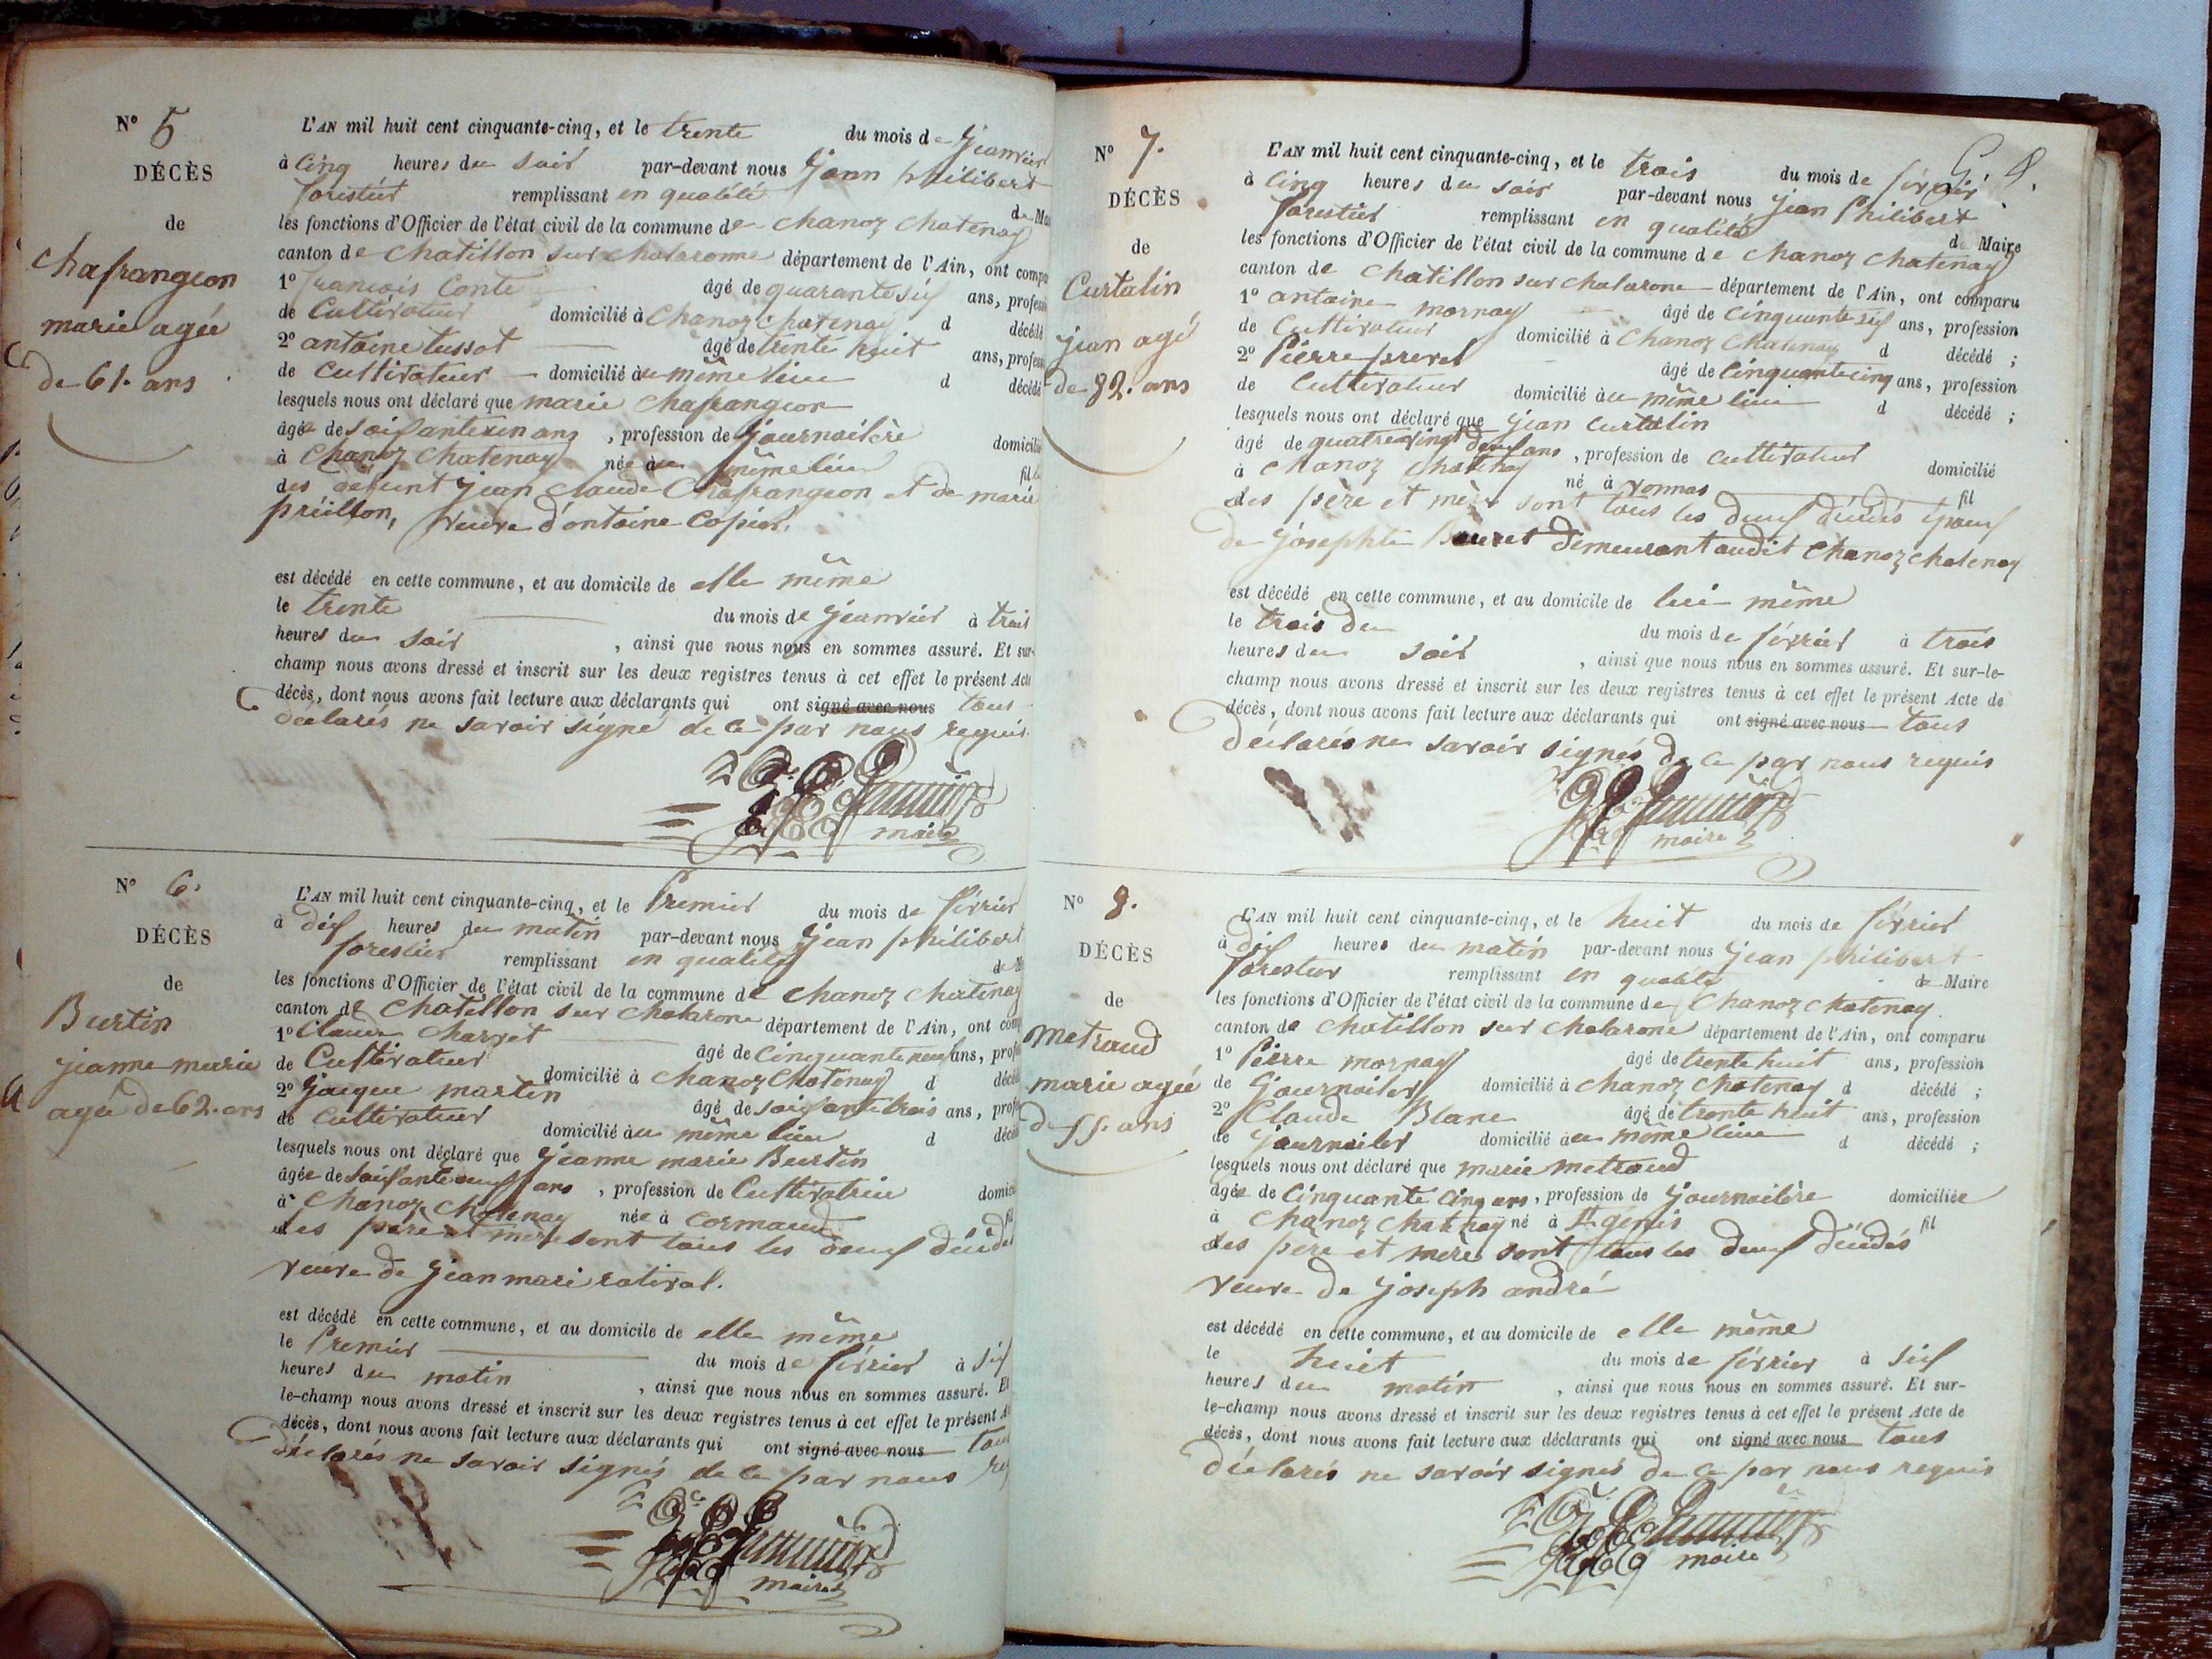 N° 5
DÉCÈS
de
Chafrangeon
marie agée
de 61. ans
L'AN mil huit cent cinquante-cinq, et le trente du mois de Jeanvier
à Cinq heures du soir par-devant nous Jean philibert
forestier remplissant en qualité de Ma
les fonctions d'Officier de l'état civil de la commune de chanoz chatenay
canton de Chatillon sur chalaronne département de l'Ain, ont compa
1° francois Conte âgé de quarante six ans, professi
de Cultivateur domicilié à Chanoz chatenay d décédé
2° antoine tussot âgé de trente huit ans, profess
de Cultivateur domicilié àu même lieu d décédé
lesquels nous ont déclaré que marie Chafrangeon
âgée de soixante un ans , profession de Journailère domicili
à Chanoz Chatenay née àu même lieu fil
des défunt Jean claude Chafrangeon et de marie
préillon, Veuve d'antoine Copier.
est décédé en cette commune, et au domicile de elle même
le trente du mois de Jeanvier à trois
heures du soir , ainsi que nous nous en sommes assuré. Et sur-
champ nous avons dressé et inscrit sur les deux registres tenus à cet effet le présent Acte
décès, dont nous avons fait lecture aux déclarants qui ont signé avec nous tous
déclarés ne savoir signé de ce par nous requis
maire
N° 6.
DÉCÈS
de
Burtin
jeanne marie
agée de 62. ans
L'AN mil huit cent cinquante-cinq, et le Premier du mois de février
à dix heures du matin par-devant nous Jean philibert
forestier remplissant en qualité de M
les fonctions d'Officier de l'état civil de la commune de chanoz chatenay
canton de Chatillon sur chalarone département de l'Ain, ont com
1° Claude Charvet âgé de Cinquante neuf ans, profe
de Cultivateur domicilié à Chanoz Chatenay d décéd
2° Jacque martin âgé de soixante trois ans, profe
de Cultivateur domicilié àu même lieu d décéd
lesquels nous ont déclaré que Jeanne marie Burtin
âgée de soixante deux ans , profession de Cultivatrice domici
à Chanoz Chatenay née à Cormand fil
des père et mère sont tous les deux décédés
veuve de Jean mari rativat.
est décédé en cette commune, et au domicile de elle même
le Premier du mois de février à six
heures du matin , ainsi que nous nous en sommes assuré. Et
le-champ nous avons dressé et inscrit sur les deux registres tenus à cet effet le présent A
décès, dont nous avons fait lecture aux déclarants qui ont signé avec nous tous
déclarés ne savoir signés de ce par nous re
maire
N° 7.
DÉCÈS
de
Curtalin
jean agé
de 82. ans
L'AN mil huit cent cinquante-cinq, et le trois du mois de février
à Cinq heures du soir par-devant nous Jean Philibert
forestier remplissant en qualité de Maire
les fonctions d'Officier de l'état civil de la commune de chanoz chatenay
canton de Chatillon sur chalarone département de l'Ain, ont comparu
1° antoine mornay âgé de cinquante six ans, profession
de Cultivateur domicilié à Chanoz Chatenay d décédé ;
2° Pierre prevel âgé de Cinquante cinq ans, profession
de Cultivateur domicilié àu même lieu d décédé ;
lesquels nous ont déclaré que Jean Curtalin
âgé de quatre vingt deux ans , profession de cultivateur domicilié
à Chanoz Chatenay né à vonnas fil
des père et mère sont tous les deux décédés Epoux
de Josephte demeurant audit Chanoz chatenay
est décédé en cette commune, et au domicile de lui même
le trois du du mois de février à trois
heures du soir , ainsi que nous nous en sommes assuré. Et sur-le-
champ nous avons dressé et inscrit sur les deux registres tenus à cet effet le présent Acte de
décès, dont nous avons fait lecture aux déclarants qui ont signé avec nous tous
déclarés ne savoir signés de ce par nous requis
maire
N° 8.
DÉCÈS
de
Metraud
marie agée
de 55. ans
L'AN mil huit cent cinquante-cinq, et le huit du mois de février
à dix heures du matin par-devant nous Jean philibert
forestier remplissant en qualité de Maire
les fonctions d'Officier de l'état civil de la commune de Chanoz chatenay.
canton de chatillon sur chalarone département de l'Ain, ont comparu
1° Pierre mornay âgé de trente huit ans, profession
de Journailer domicilié à chanoz chatenay d décédé ;
2° Claude Blanc âgé de trente huit ans, profession
de Journailer domicilié àu même lieu d décédé ;
lesquels nous ont déclaré que marie metraud
âgée de Cinquante Cinq ans, profession de Journailère domiciliée
à Chanoz Chatenay né à St genis fil
des père et mère sont tous les deux décédés
veuve de Joseph andré
est décédé en cette commune, et au domicile de elle même
le huit du mois de février à six
heures du matin , ainsi que nous nous en sommes assuré. Et sur-
le-champ nous avons dressé et inscrit sur les deux registres tenus à cet effet le présent Acte de
décès, dont nous avons fait lecture aux déclarants qui ont signé avec nous tous
déclarés ne savoir signés de ce par nous requis
maire